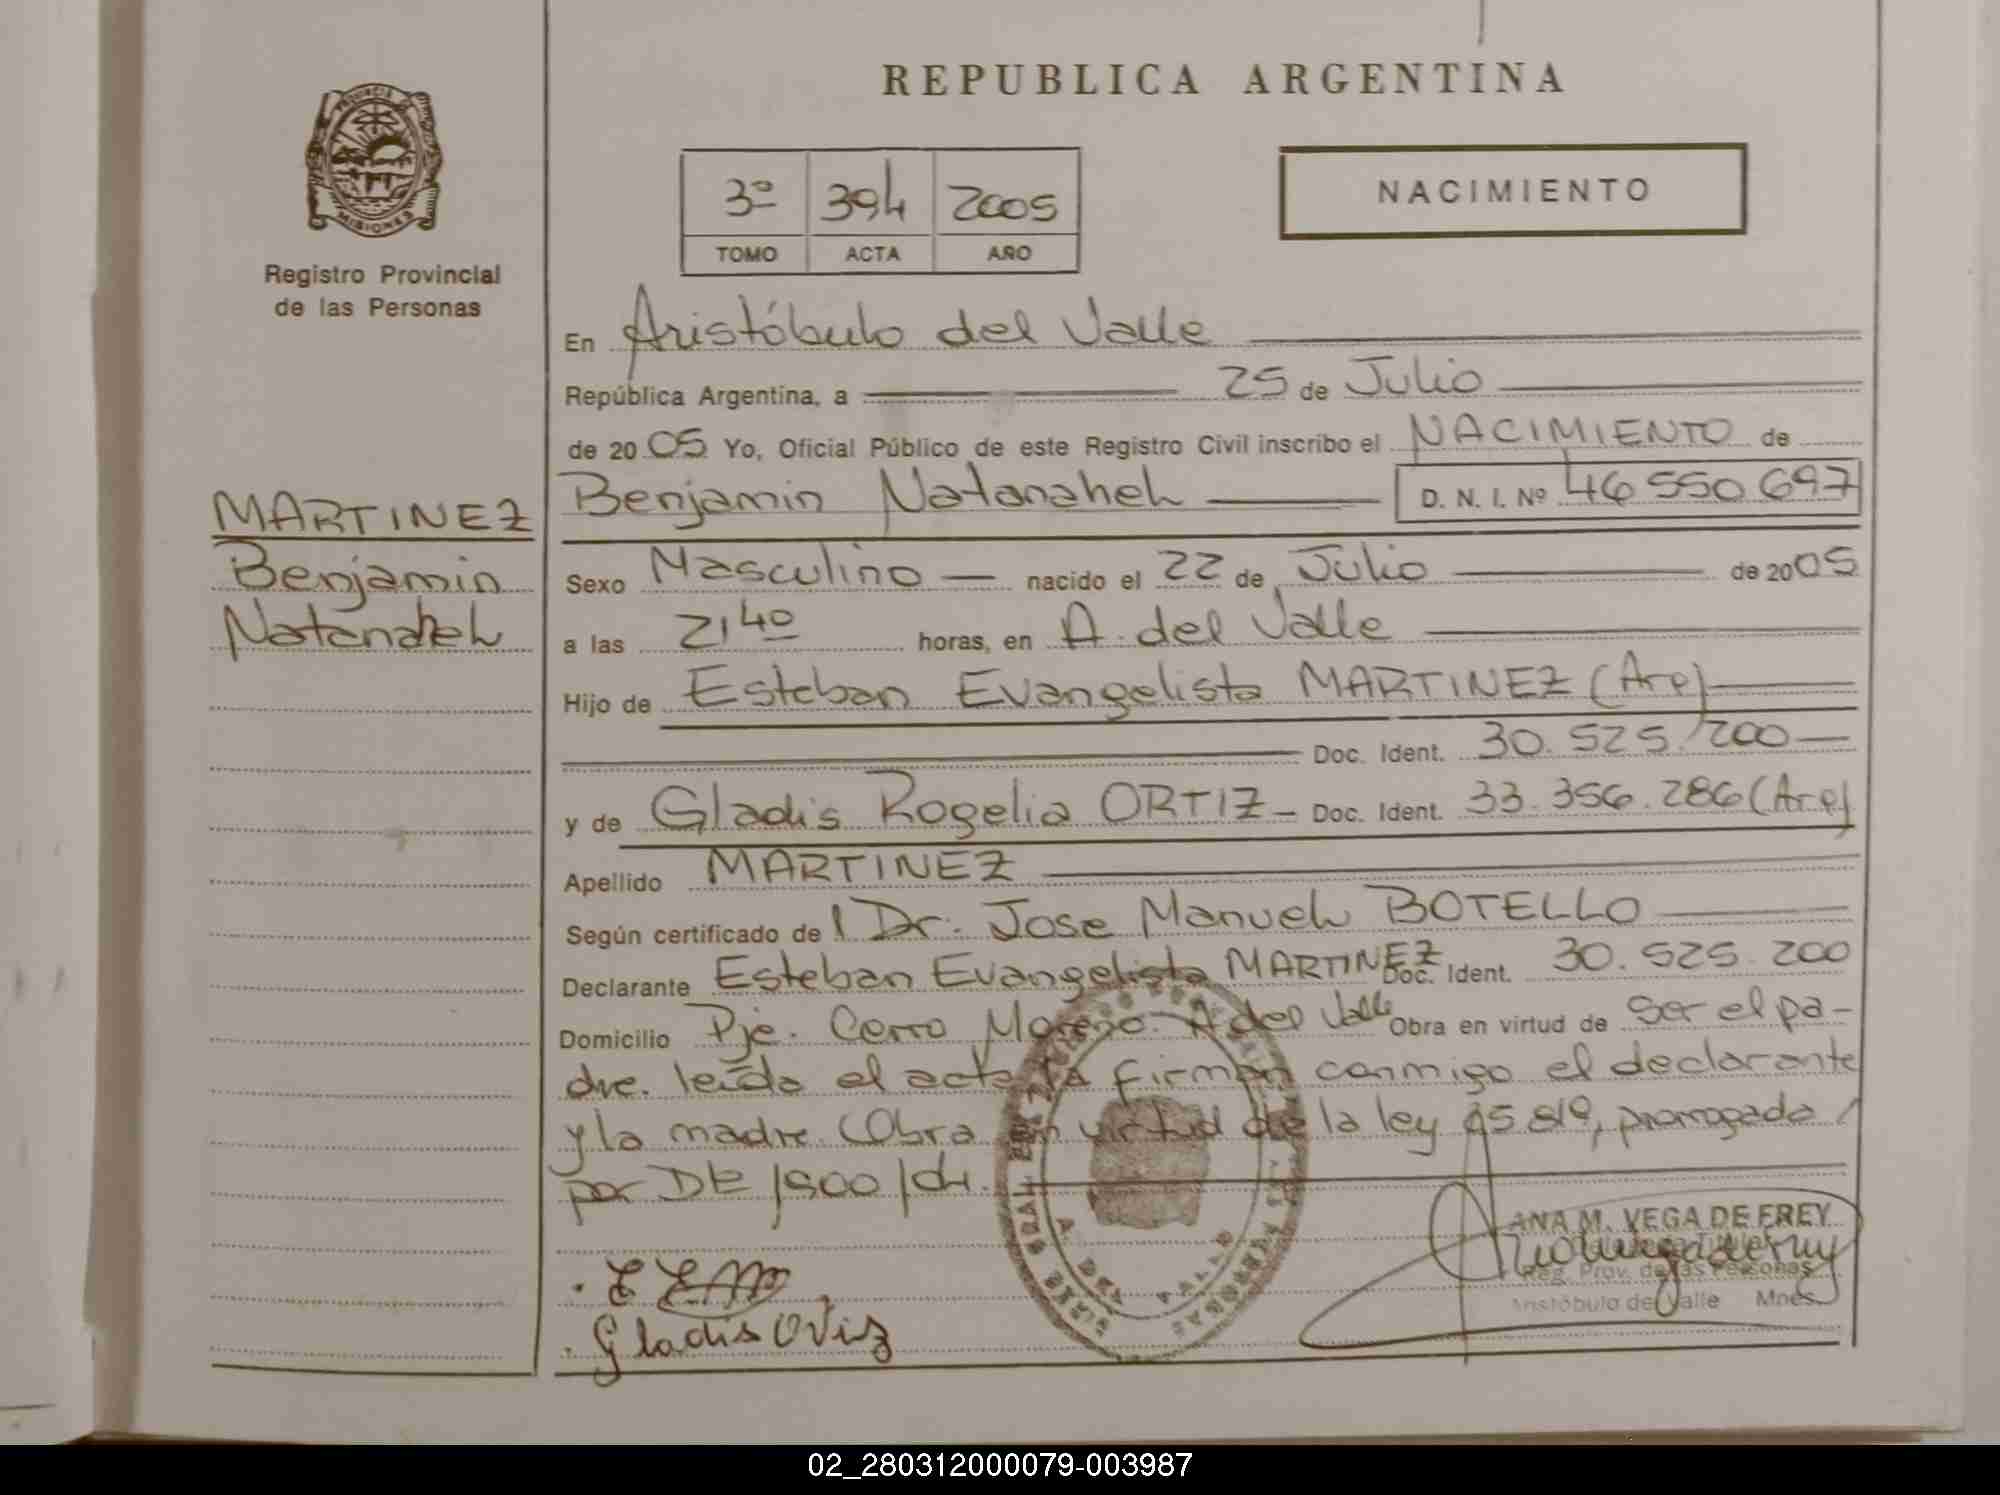 REPUBLICA ARGENTINA
PROVINCIA DE
MISIONES
Registro Provincial
de las Personas
3º 394 2005
TOMO ACTA AÑO
NACIMIENTO
En Aristóbulo del Valle
República Argentina, a 25 de Julio
de 2005 Yo, Oficial Público de este Registro Civil inscribo el NACIMIENTO de
Benjamin Natanahel D. N. I. Nº 46 550 697
MARTINEZ
Benjamin
Natanahel
Sexo Masculino nacido el 22 de Julio de 2005
a las 21 40 horas, en A. del Valle
Hijo de Esteban Evangelista MARTINEZ (Arg)
Doc. Ident. 30.525.200
y de Gladis Rogelia ORTIZ Doc. Ident. 33.356.286 (Arg)
Apellido MARTINEZ
Según certificado del Dr. Jose Manuel BOTELLO
Declarante Esteban Evangelista MARTINEZ Doc. Ident. 30.525.200
Domicilio Pje. Cerro Moreno. A del Valle Obra en virtud de Ser el pa-
dre. leída el acta la firman conmigo el declarante
y la madre. Obra en virtud de la ley 25.819, prorrogada
por DE 1900/04.
ANA M. VEGA DE FREY
Reg. Prov. de las Personas
Aristóbulo del Valle Mnes.
Gladis Ortiz
A. DEL VALLE
02_280312000079-003987